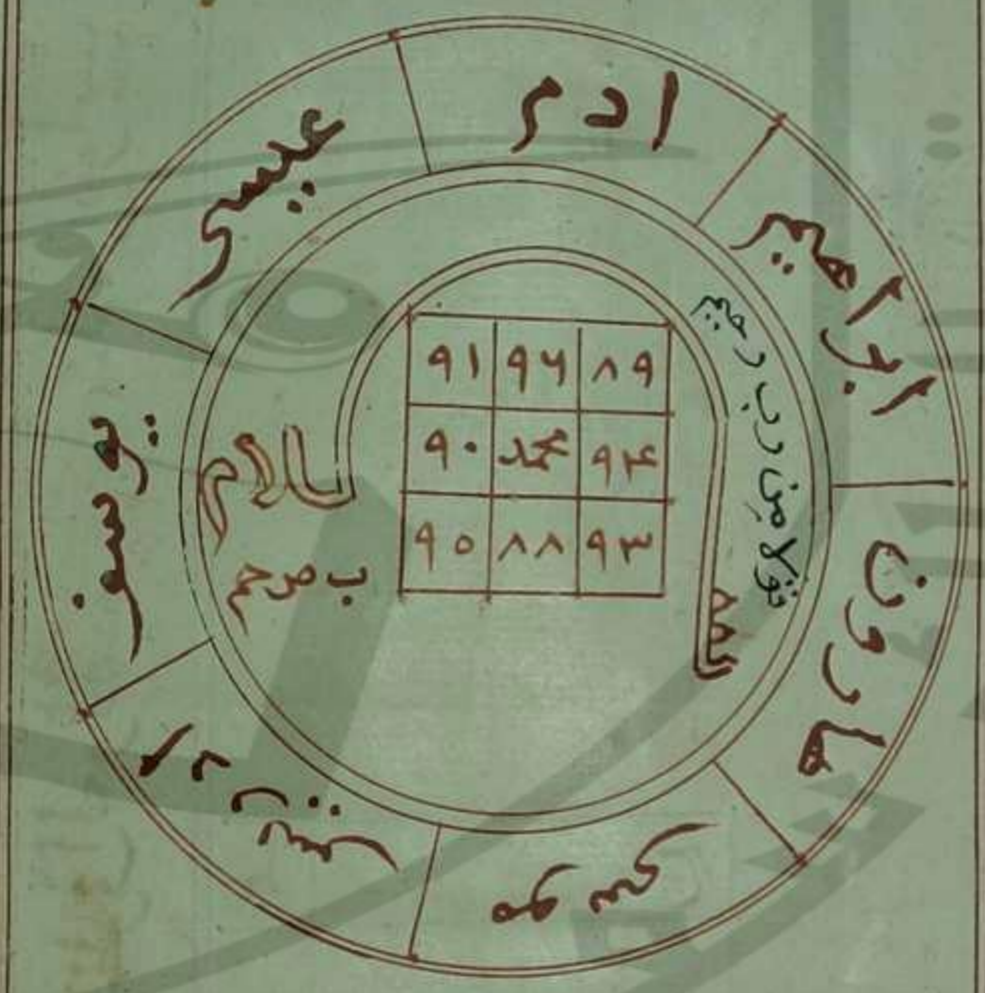 ادم
ابراهيم
هارون
موسى
ادريس
يوسف
عيسى
سلام
قولا من رب رحيم
٨٩ ٩٦ ٩١
٩٤ محمد ٩٠
٩٣ ٨٨ ٩٥